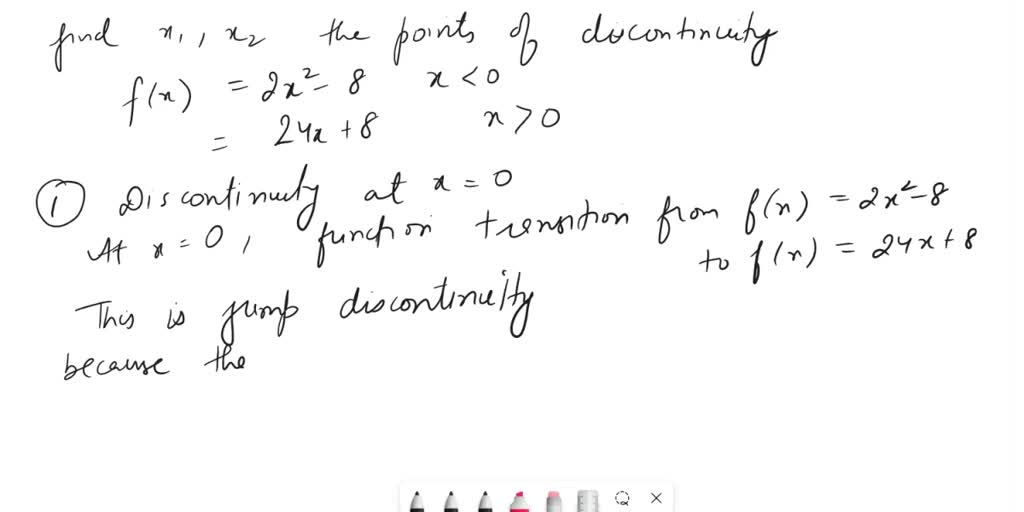 find x₁, x₂ the points of discontinuity
f(x) = 2x² - 8 x < 0
= 24x + 8 x > 0
① Discontinuity at x = 0
At x = 0, function transition from f(x) = 2x² - 8
to f(x) = 24x + 8
This is jump discontinuity
because the